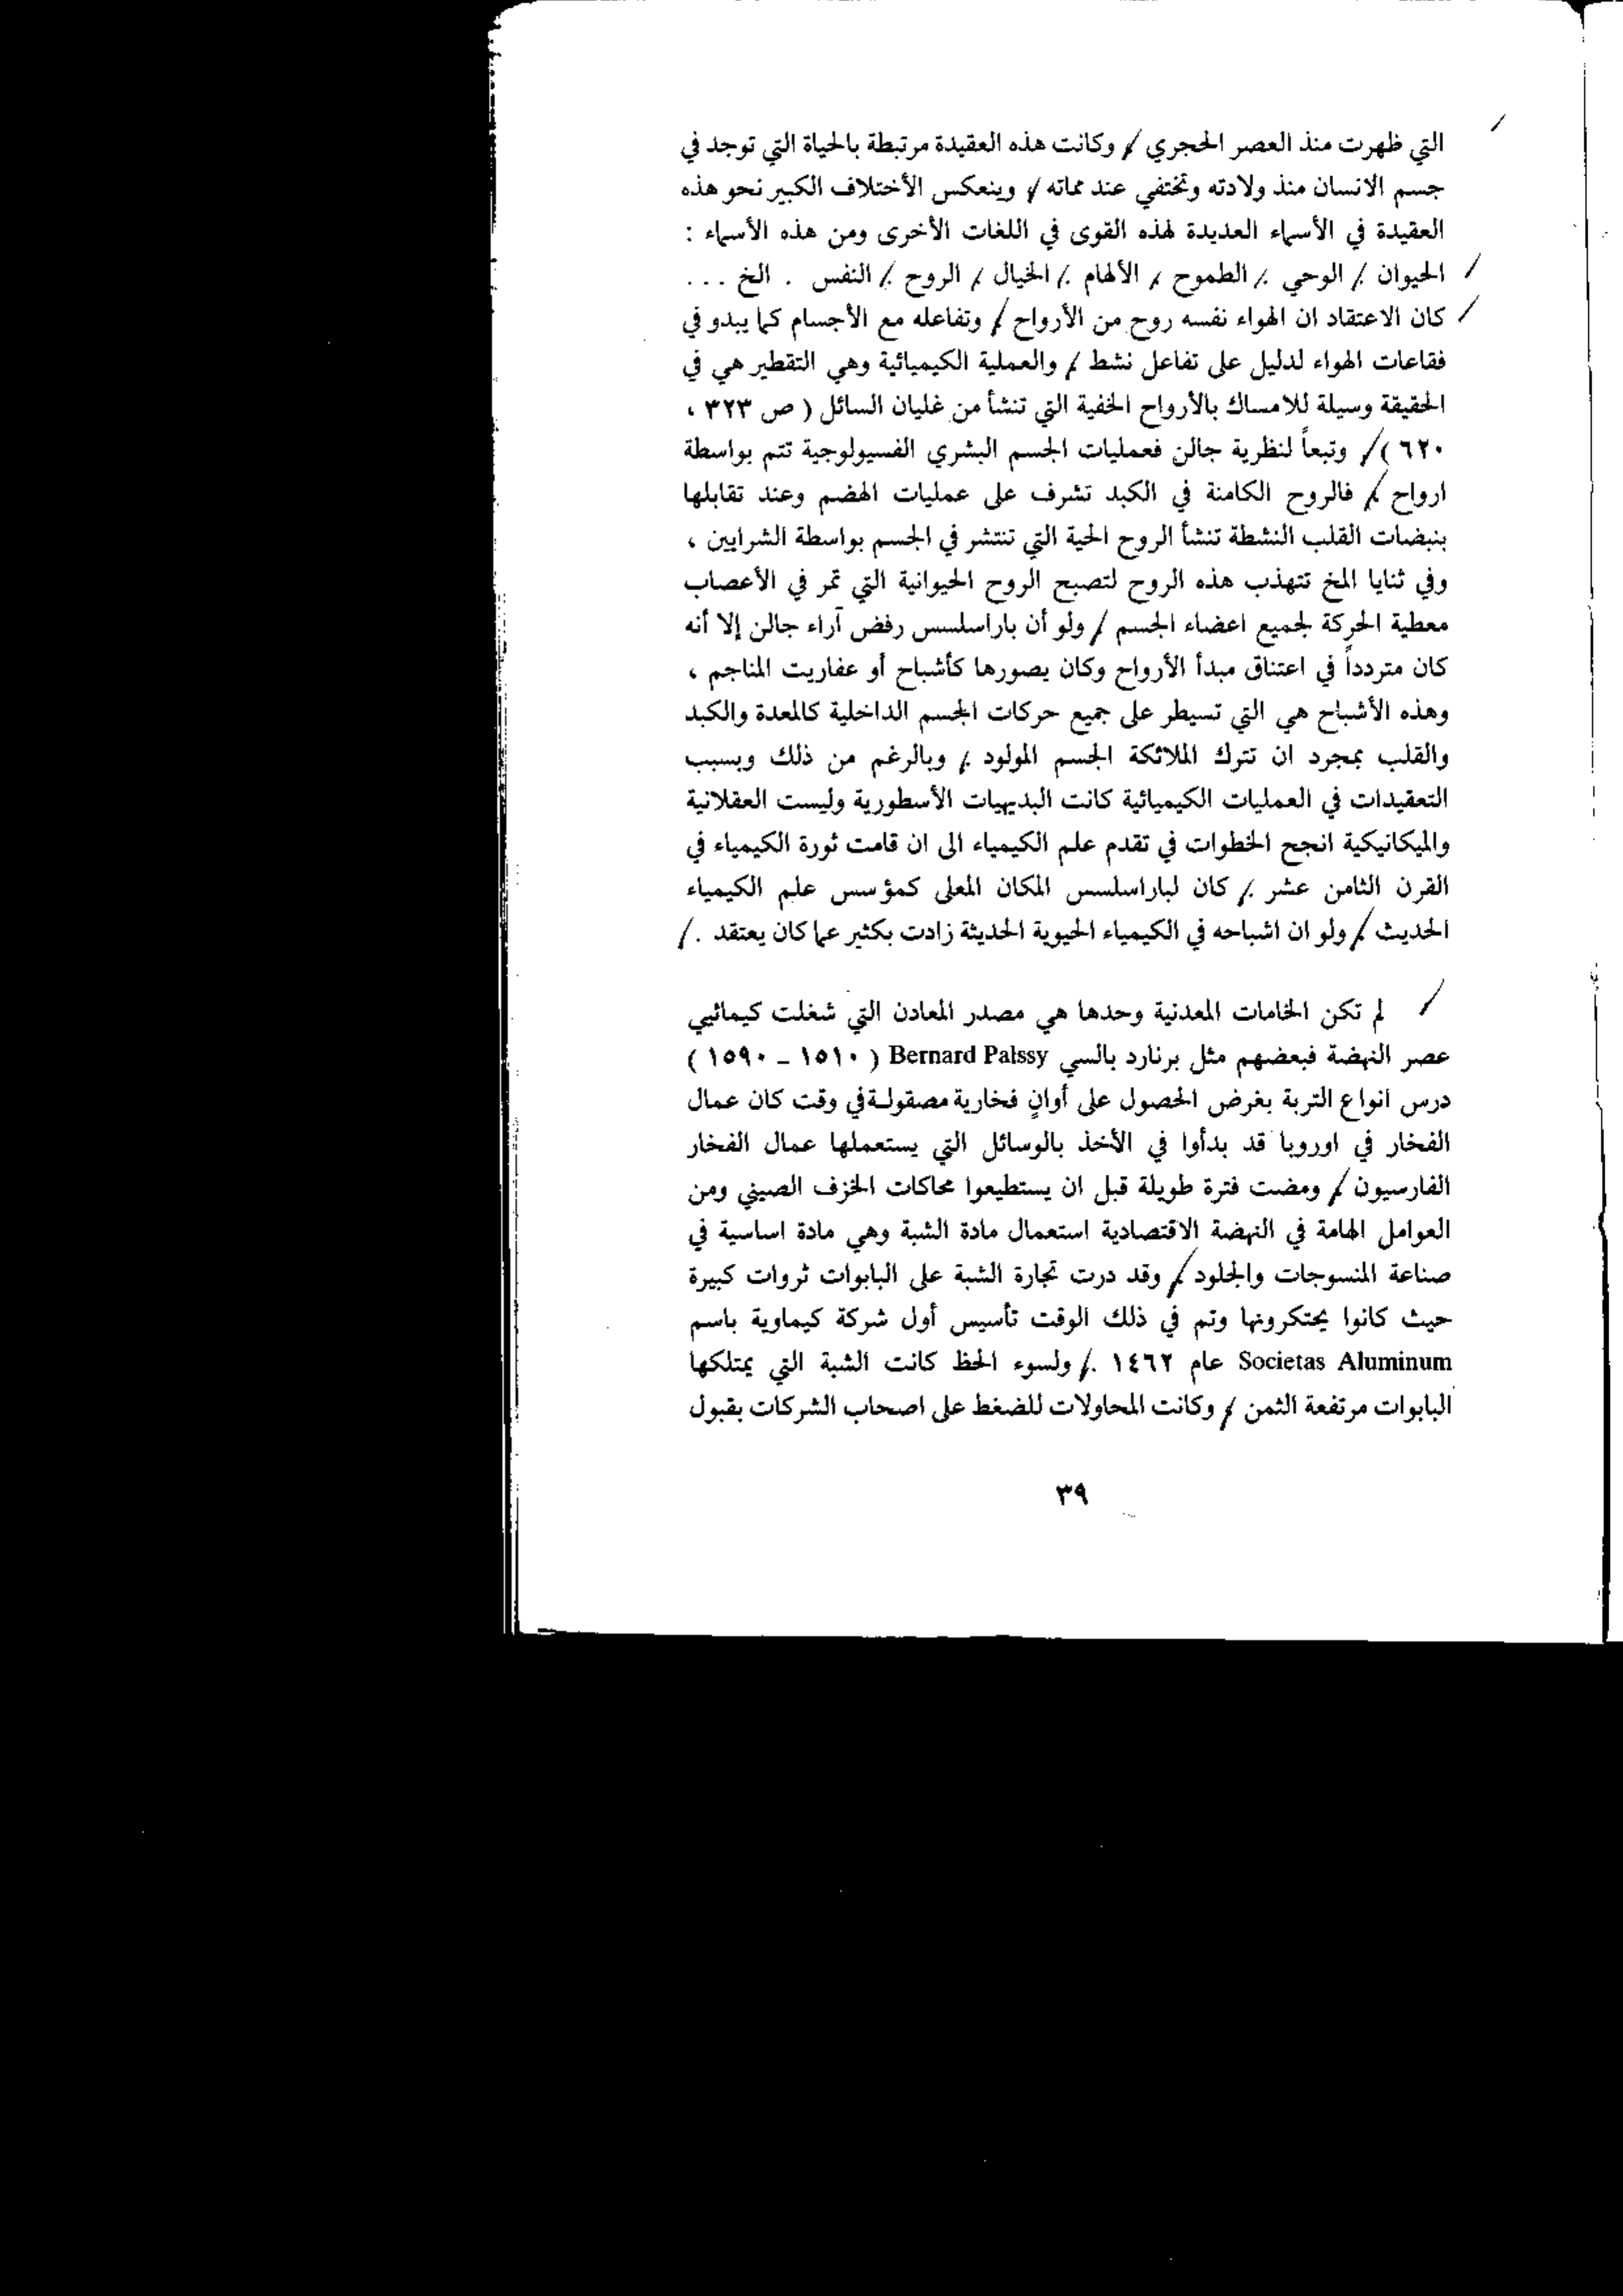 التي ظهرت منذ العصر الحجري / وكانت هذه العقيدة مرتبطة بالحياة التي توجد في
جسم الانسان منذ ولادته وتختفي عند مماته / وينعكس الأختلاف الكبير نحو هذه
العقيدة في الأسماء العديدة لهذه القوى في اللغات الأخرى ومن هذه الأسماء :
الحيوان / الوحي / الطموح / الألهام / الخيال / الروح / النفس . الخ ...
كان الاعتقاد ان الهواء نفسه روح من الأرواح / وتفاعله مع الأجسام كما يبدو في
فقاعات الهواء لدليل على تفاعل نشط / والعملية الكيميائية وهي التقطير هي في
الحقيقة وسيلة للامساك بالأرواح الخفية التي تنشأ من غليان السائل ( ص ٣٢٣ ،
٦٢٠ ) / وتبعاً لنظرية جالن فعمليات الجسم البشري الفسيولوجية تتم بواسطة
ارواح / فالروح الكامنة في الكبد تشرف على عمليات الهضم وعند تقابلها
بنبضات القلب النشطة تنشأ الروح الحية التي تنتشر في الجسم بواسطة الشرايين ،
وفي ثنايا المخ تتهذب هذه الروح لتصبح الروح الحيوانية التي تمر في الأعصاب
معطية الحركة لجميع اعضاء الجسم / ولو أن باراسلسس رفض آراء جالن إلا أنه
كان متردداً في اعتناق مبدأ الأرواح وكان يصورها كأشباح أو عفاريت المناجم ،
وهذه الأشباح هي التي تسيطر على جميع حركات الجسم الداخلية كالمعدة والكبد
والقلب بمجرد ان تترك الملائكة الجسم المولود / وبالرغم من ذلك وبسبب
التعقيدات في العمليات الكيميائية كانت البديهيات الأسطورية وليست العقلانية
والميكانيكية انجح الخطوات في تقدم علم الكيمياء الى ان قامت ثورة الكيمياء في
القرن الثامن عشر / كان لباراسلسس المكان المعلى كمؤسس علم الكيمياء
الحديث / ولو ان اشباحه في الكيمياء الحيوية الحديثة زادت بكثير عما كان يعتقد . /
لم تكن الخامات المعدنية وحدها هي مصدر المعادن التي شغلت كيمائيي
عصر النهضة فبعضهم مثل برنارد بالسي Bernard Palssy ( ١٥١٠ - ١٥٩٠ )
درس انواع التربة بغرض الحصول على أوانٍ فخارية مصقولة في وقت كان عمال
الفخار في اوروبا قد بدأوا في الأخذ بالوسائل التي يستعملها عمال الفخار
الفارسيون / ومضت فترة طويلة قبل ان يستطيعوا محاكات الخزف الصيني ومن
العوامل الهامة في النهضة الاقتصادية استعمال مادة الشبة وهي مادة اساسية في
صناعة المنسوجات والجلود / وقد درت تجارة الشبة على البابوات ثروات كبيرة
حيث كانوا يحتكرونها وتم في ذلك الوقت تأسيس أول شركة كيماوية باسم
Societas Aluminum عام ١٤٦٢ . / ولسوء الحظ كانت الشبة التي يمتلكها
البابوات مرتفعة الثمن / وكانت المحاولات للضغط على اصحاب الشركات بقبول
٣٩